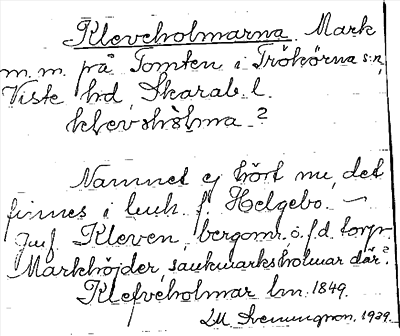 Kleveholmarna Mark
m.m. på Tomten i Trökörna sn,
Viste hd, Skarab. l.
klevshòlma ?
Namnet ej hört nu, det
finnes i luuh. f. Helgebo. –
Jmf Kleven, bergomr. o. f.d. torp.
Markhöjder, sankmarksholmar där?
Klefveholmar lm. 1849.
1929.